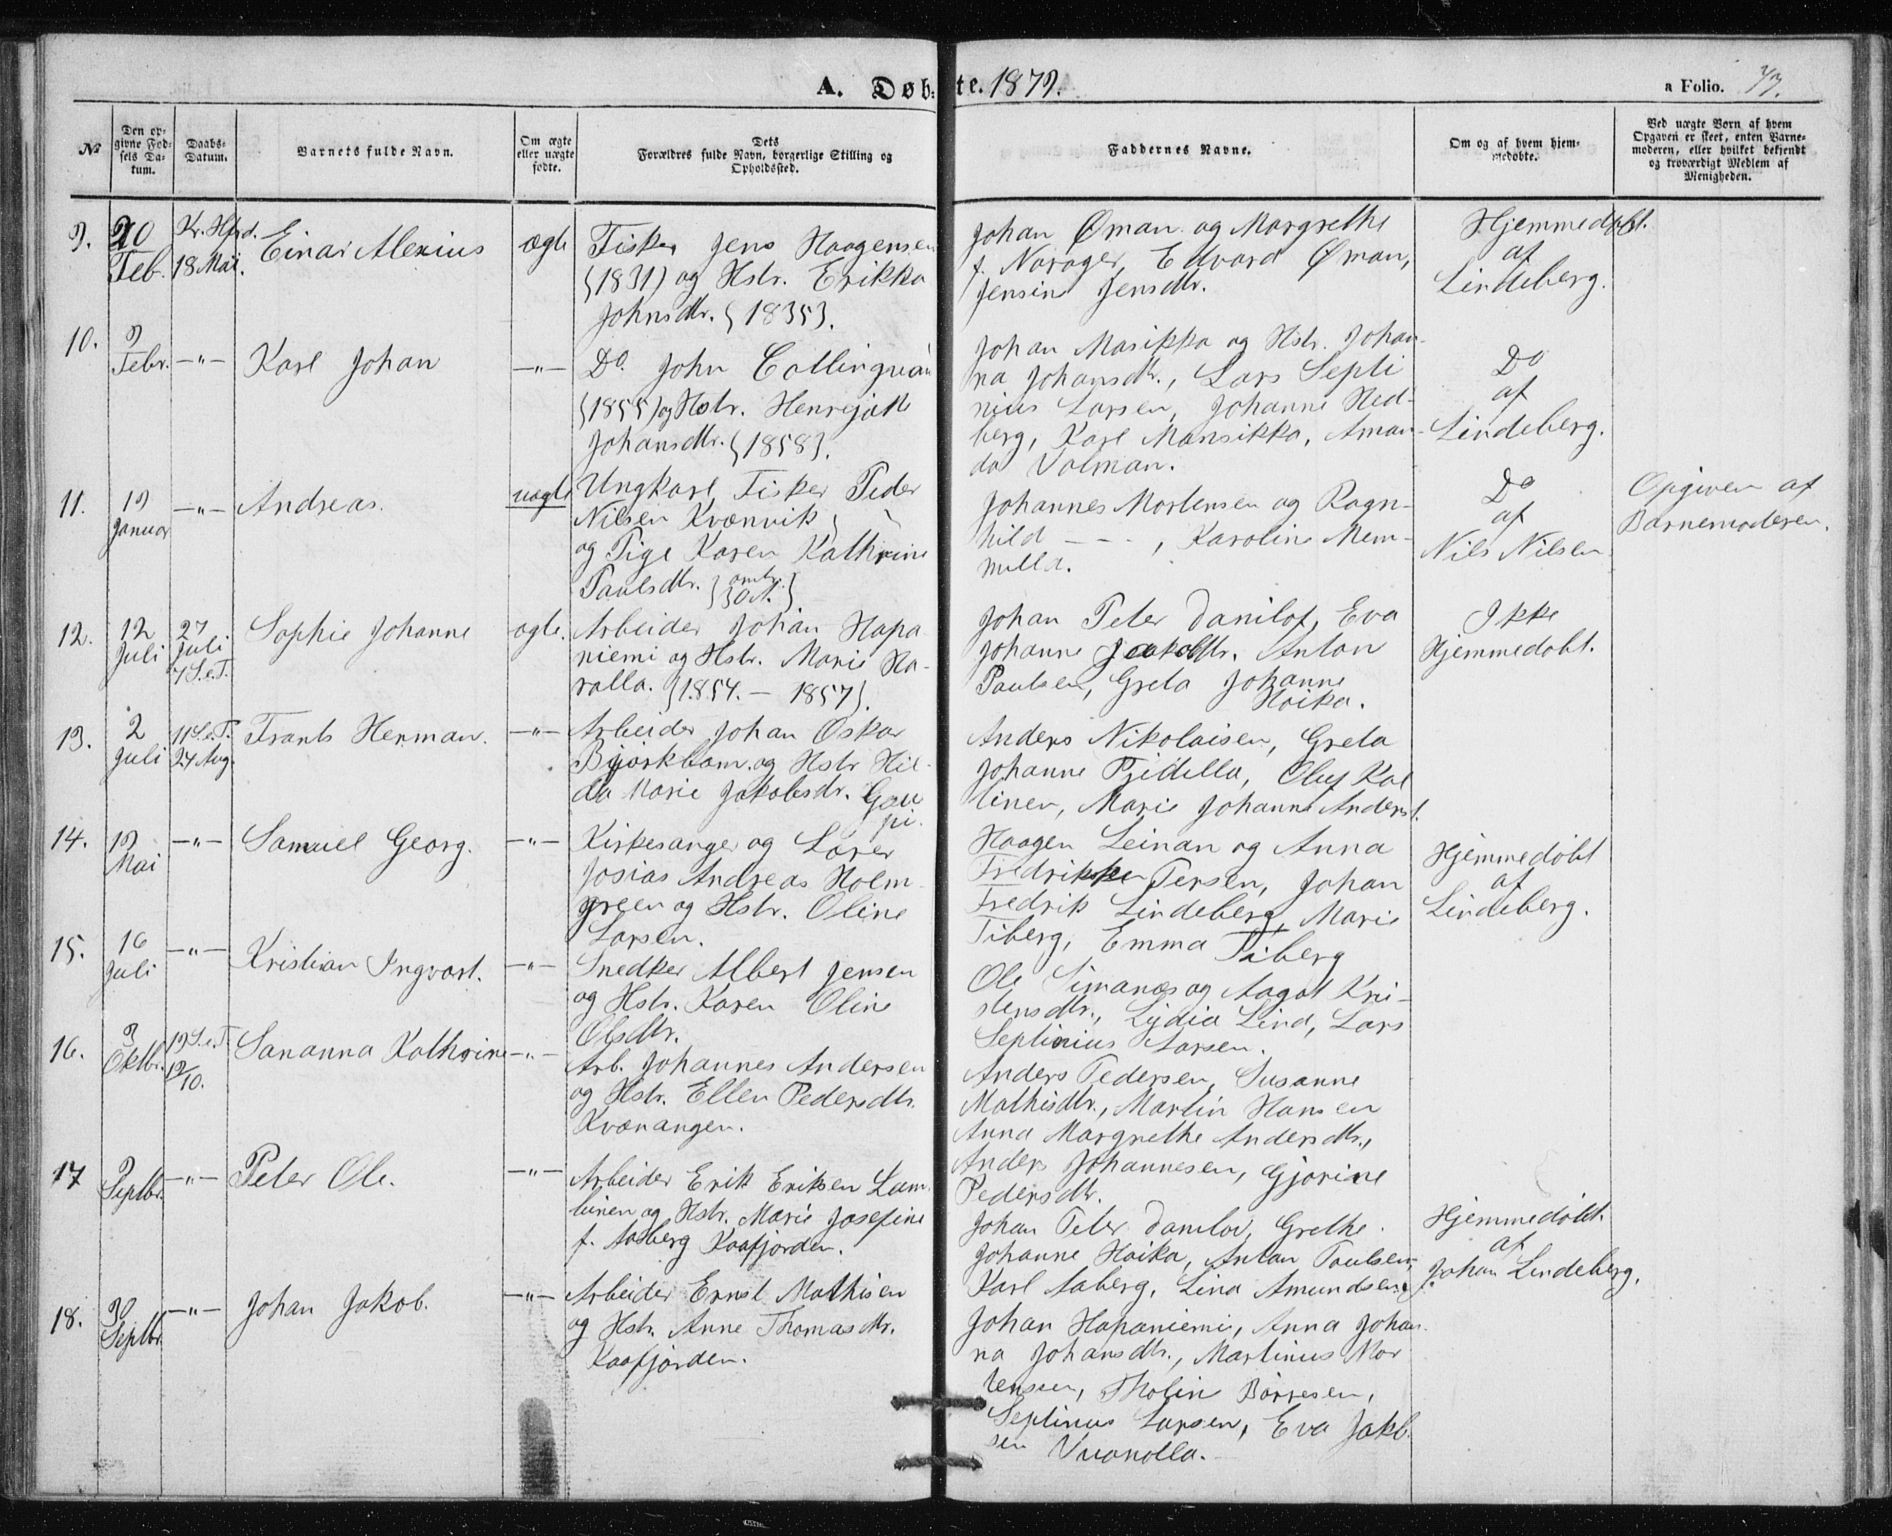 A. Døbte. 1879.
a Folio. 73.
No
Den op-
givne Fød-
sels Da-
tum.
Daabs-
Datum.
Barnets fulde Navn.
Om ægte
eller uægte
fødte.
Dets
Forældres fulde Navn, borgerlige Stilling og
Opholdssted.
Faddernes Navne.
Om og af hvem hjem-
medøbte.
Ved uægte Børn af hvem
Opgaven er skeet, enten Barne-
moderen, eller hvilket bekjendt
og troværdigt Medlem af
Menigheden.
9.
20
Feb.
Kr. Hfrd.
18 Mai.
Einar Alexius
ægte
Fisker Jens Haagensen
(1831) og Hstr. Erikka
Johnsdtr. (1835).
Johan Öman og Margrethe
f. Norager, Edvard Öman,
Jensine Jensdtr.
Hjemmedøbt.
af
Lindeberg.
10.
9
Febr.
—"—
Karl Johan
—"—
Do. John Collinguan
(1855) og Hstr. Henrijette
Johansdtr. (1858).
Johan Marikka og Hstr. Johan-
na Johansdtr., Lars Septi
nius Larsen, Johanne Hed-
berg, Karl Mansikka, Aman-
da Volman.
Do
af
Lindeberg.
11.
19
Januar
—"—
Andreas.
uægte
Ungkarl, Fisker Peder
Nilsen Kvænvik
og Pige Karen Kathrine
Paulsdtr. (omtr. 30 A.)
Johannes Mortensen og Ragn-
hild — - - , Karoline Mem-
mella.
Do
af
Nils Nilsen
Opgiven af
Barnemoderen.
12.
12
Juli
27
Juli
7 S.e.T.
Sophie Johanne
ægte.
Arbeider Johan Hapa-
niemi og Hstr. Marie Ha-
ralla. (1854. — 1857).
Johan Peter Danilof, Eva
Johanne Jakobdtr. Anton
Paulsen, Greta Johanne
Hoika.
Ikke
Hjemmedøbt.
13.
2
Juli
11 S.e.T.
24 Aug.
Frants Herman.
—"—
Arbeider Johan Oskar
Bjørkbom og Hstr Hil-
da Marie Jakobsdr. Gau
pi.
Anders Nikolaisen, Greta
Johanne Pridella, Oluf Kal
linen, Marie Johanne Anderst.
14.
19
Mai
—"—
Samuel Georg.
—"—
Kirkesanger og Lærer
Josias Andreas Holm
green og Hstr. Oline
Larsen.
Haagen Leinan og Anna
Fredrikke Persen, Johan
Fredrik Lindeberg, Marie
Tiberg, Emma Tiberg
Hjemmedøbt
af
Lindeberg.
15.
16
Juli
—"—
Kristian Ingvart.
—"—
Snedker Albert Jensen
og Hstr. Karen Oline
Olsdtr.
Ole Simanæs og Aagot Kri-
stensdtr., Lydia Lind, Lars
Septinius Larsen.
16.
3
Oktbr.
19 S.e.T.
12/10.
Sananna Kathrine
—"—
Arb. Johannes Andersen
og Hstr. Ellen Pedersdtr.
Kvænangen.
Anders Pedersen, Susanne
Mathisdtr., Martin Hansen
Anna Margrethe Andersdtr.,
Anders Johannesen, Gjorine
Pedersdtr.
17
9
Septbr.
—"—
Peter Ole.
—"—
Arbeider Erik Eriksen Lam-
binen og Hstr. Marie Josefine
f. Aasberg Kaafjorden.
Johan Peter Danilov, Grethe
Johanne Hoika, Anton Paulsen,
Karl Aaberg, Lina Amundsen.
Hjemmedøbt.
af
Johan Lindeberg.
18.
30
Septbr.
—"—
Johan Jakob.
—"—
Arbeider Ernst Mathisen
og Hstr. Anne Thomasdtr.
Kaafjorden.
Johan Hapaniemi, Anna Johan-
na Johansdtr., Martinus Mor
tensen, Tholine Børresen,
Septinus Larsen, Eva Jakb.
sen Vuonolla.